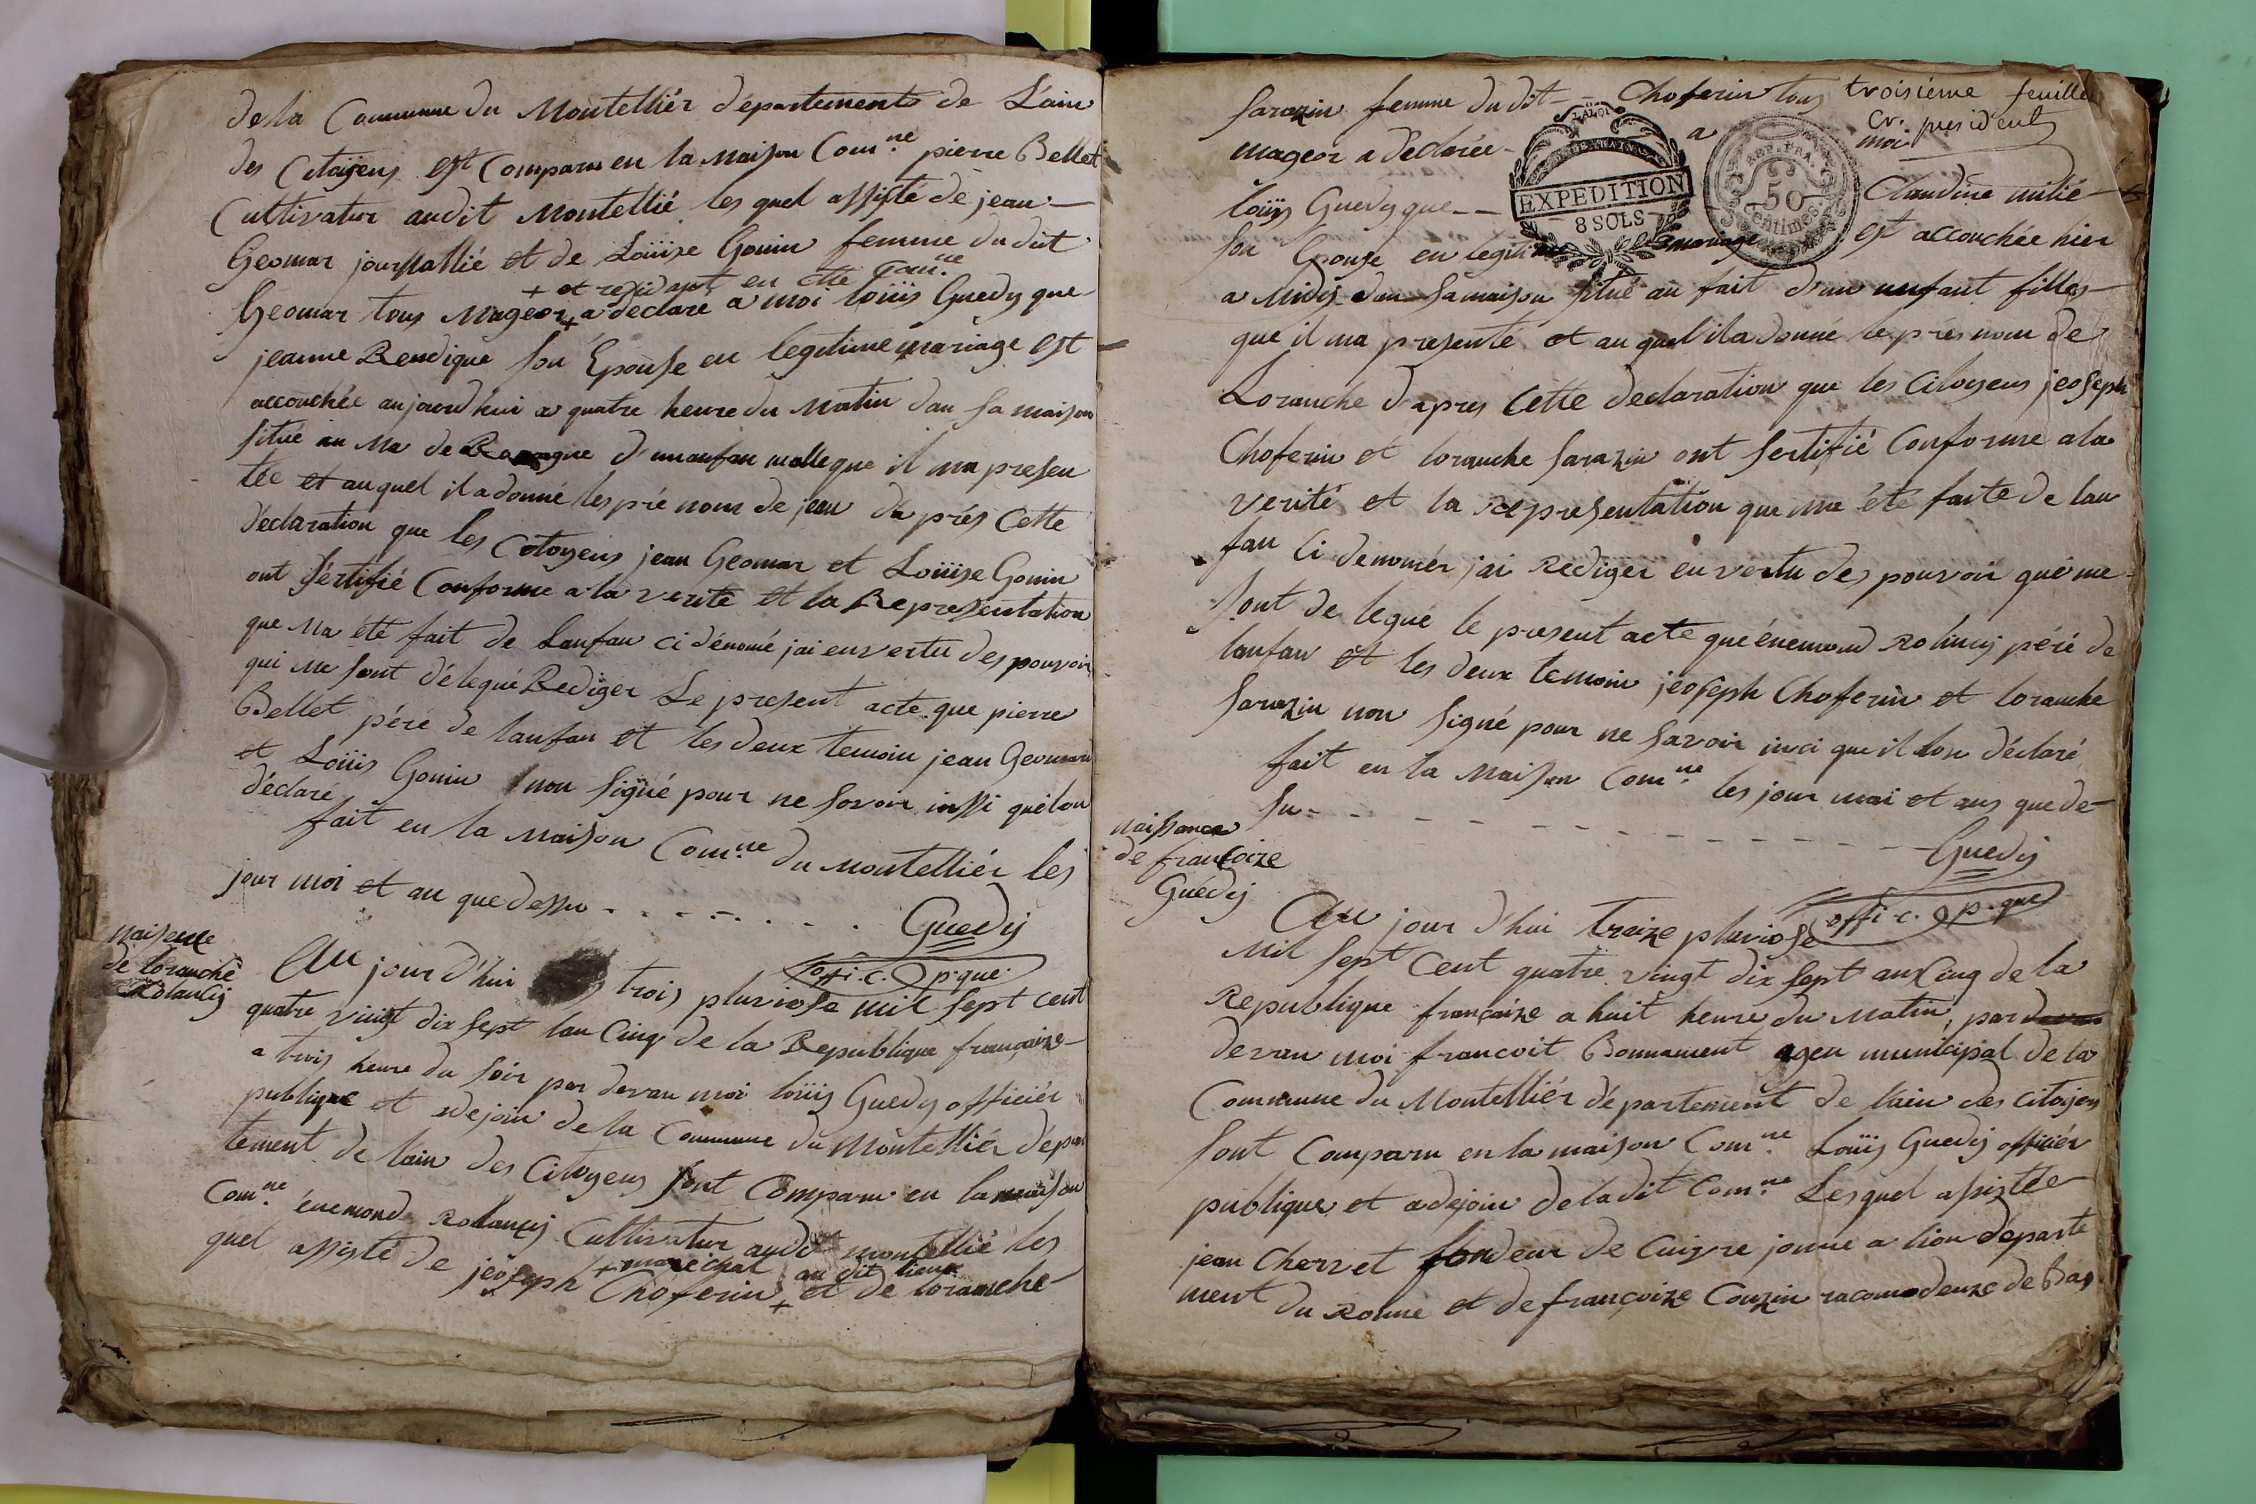 de la Commune du Montelliér département de L'ain
des Citoÿens est Comparu en la Maison Com.ne pierre Bellet
Cultivatur audit Montellié les quel assisté de jean
Geomar journallié et de Loüise Gonin femme du dit
+ et residant en cette Com.ne
Geomar tous Mageor + a déclare a moi loüis Guedy que
jeanne Rendique son Épouse en legitime mariage est
accouchée aujourd'hui a quatre heure du Matin dan sa maison
situé au Ma de d'un anfan malle que il ma presen
tée et au quel il a donné les pré nom de jean da prés Cette
déclaration que les Citoyens jean Geomar et Loüise Gonin
ont sértifié Conforme a la verité et la Representation
que Ma été fait de Lanfan ci dénomé jai en vertu des pouvoir
qui me sont délequé Rediger Le present acte que pierre
Bellet pére de lanfan et les deux temoin jean Geomar
et Loüis Gonin non signé pour ne savoir insi quélon
déclare
fait en la Maison Com.ne du Montelliér les
jour moi et an que dessu
Guedy
offi. c. p. que
Naisence
de loranche
Rolancy
Au jour d'hui trois pluviose mil sept cent
quatre vingt dix sept lan Cinq de la Republique françaize
a trois heure du soir par devan moi loüis Guedy officiér
publique et adejoin de la Commune du Montelliér dépar
tement de lain des Citoyens sont Comparu en la maison
Com.ne énemond Rolancy Cultivatur audit montellié les
+ maréchat au dit lieux
quel assisté de jeoseph Choferin + et de loranche
troisiéme feuillet
Cr. president
moi
sarazin femme du dit Choferin tous
mageor a déclarée a
loüis Guedy que Claudine milié
son Épouse en legitime mariage est accouchée hier
LA LOI
EXPEDITION
8 SOLS
REP. FRA.
50
centimes
a Midy dan sa maison situé au fait d'un unfant filles
que il ma presenté et au quel il a donné le prés nom de
Loranche d'apres Cette declaration que les Citoyens jeoseph
Choferin et loranche sarazin ont sertifié Conforme a la
verité et la representation que ma été faite de lan
fan Ci denomér jai rediger en vertu des pouvoir que me
sont de legué le present acte que énemond Rolancy péré de
lanfan et les deux temoin jeoseph Choferin et loranche
sarazin non signé pour ne savoir inci que il lon déclaré
fait en la Maison Com.ne les jour moi et ans que de
su
Guedy
offi. c. p. que
Naissance
de françoize
Guédy
Au jour d'hui traize pluviose
mil sept cent quatre vingt dix sept an Cinq de la
Republique françaize a huit heure du Matin, par
devan moi francoit Bonnament agen municipal de la
Commune du Montelliér département de lain des Citoyen
sont Comparu en la maison Com.ne Loüis Guedy officiér
publique et adejoin de la dit Com.ne Lesquel assistée
jean Charvet fondeur de Cuivre jonne a lion départe
ment du Ronne et de françoize Couzin racomodeuze de Bas